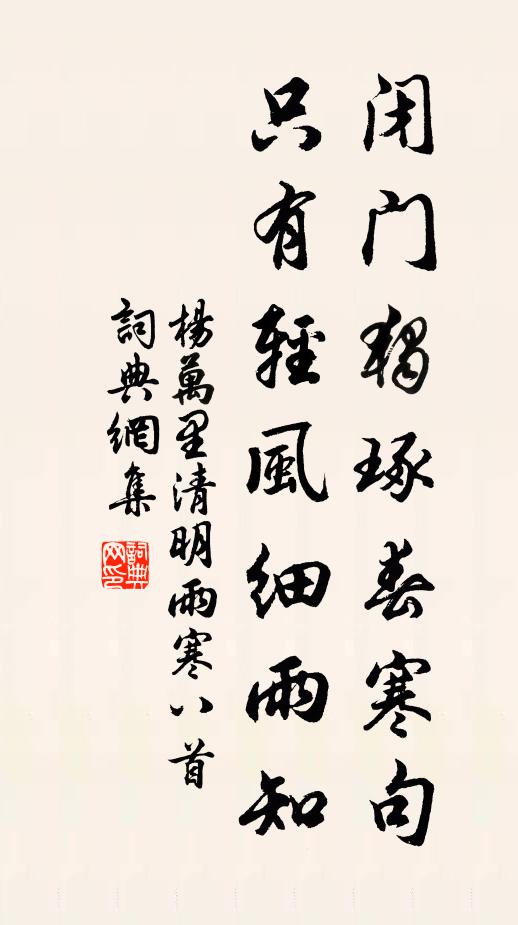 闭门独琢春寒句
只有輕風細雨知
楊萬里清明雨寒八首
詞典網集
詞典网印